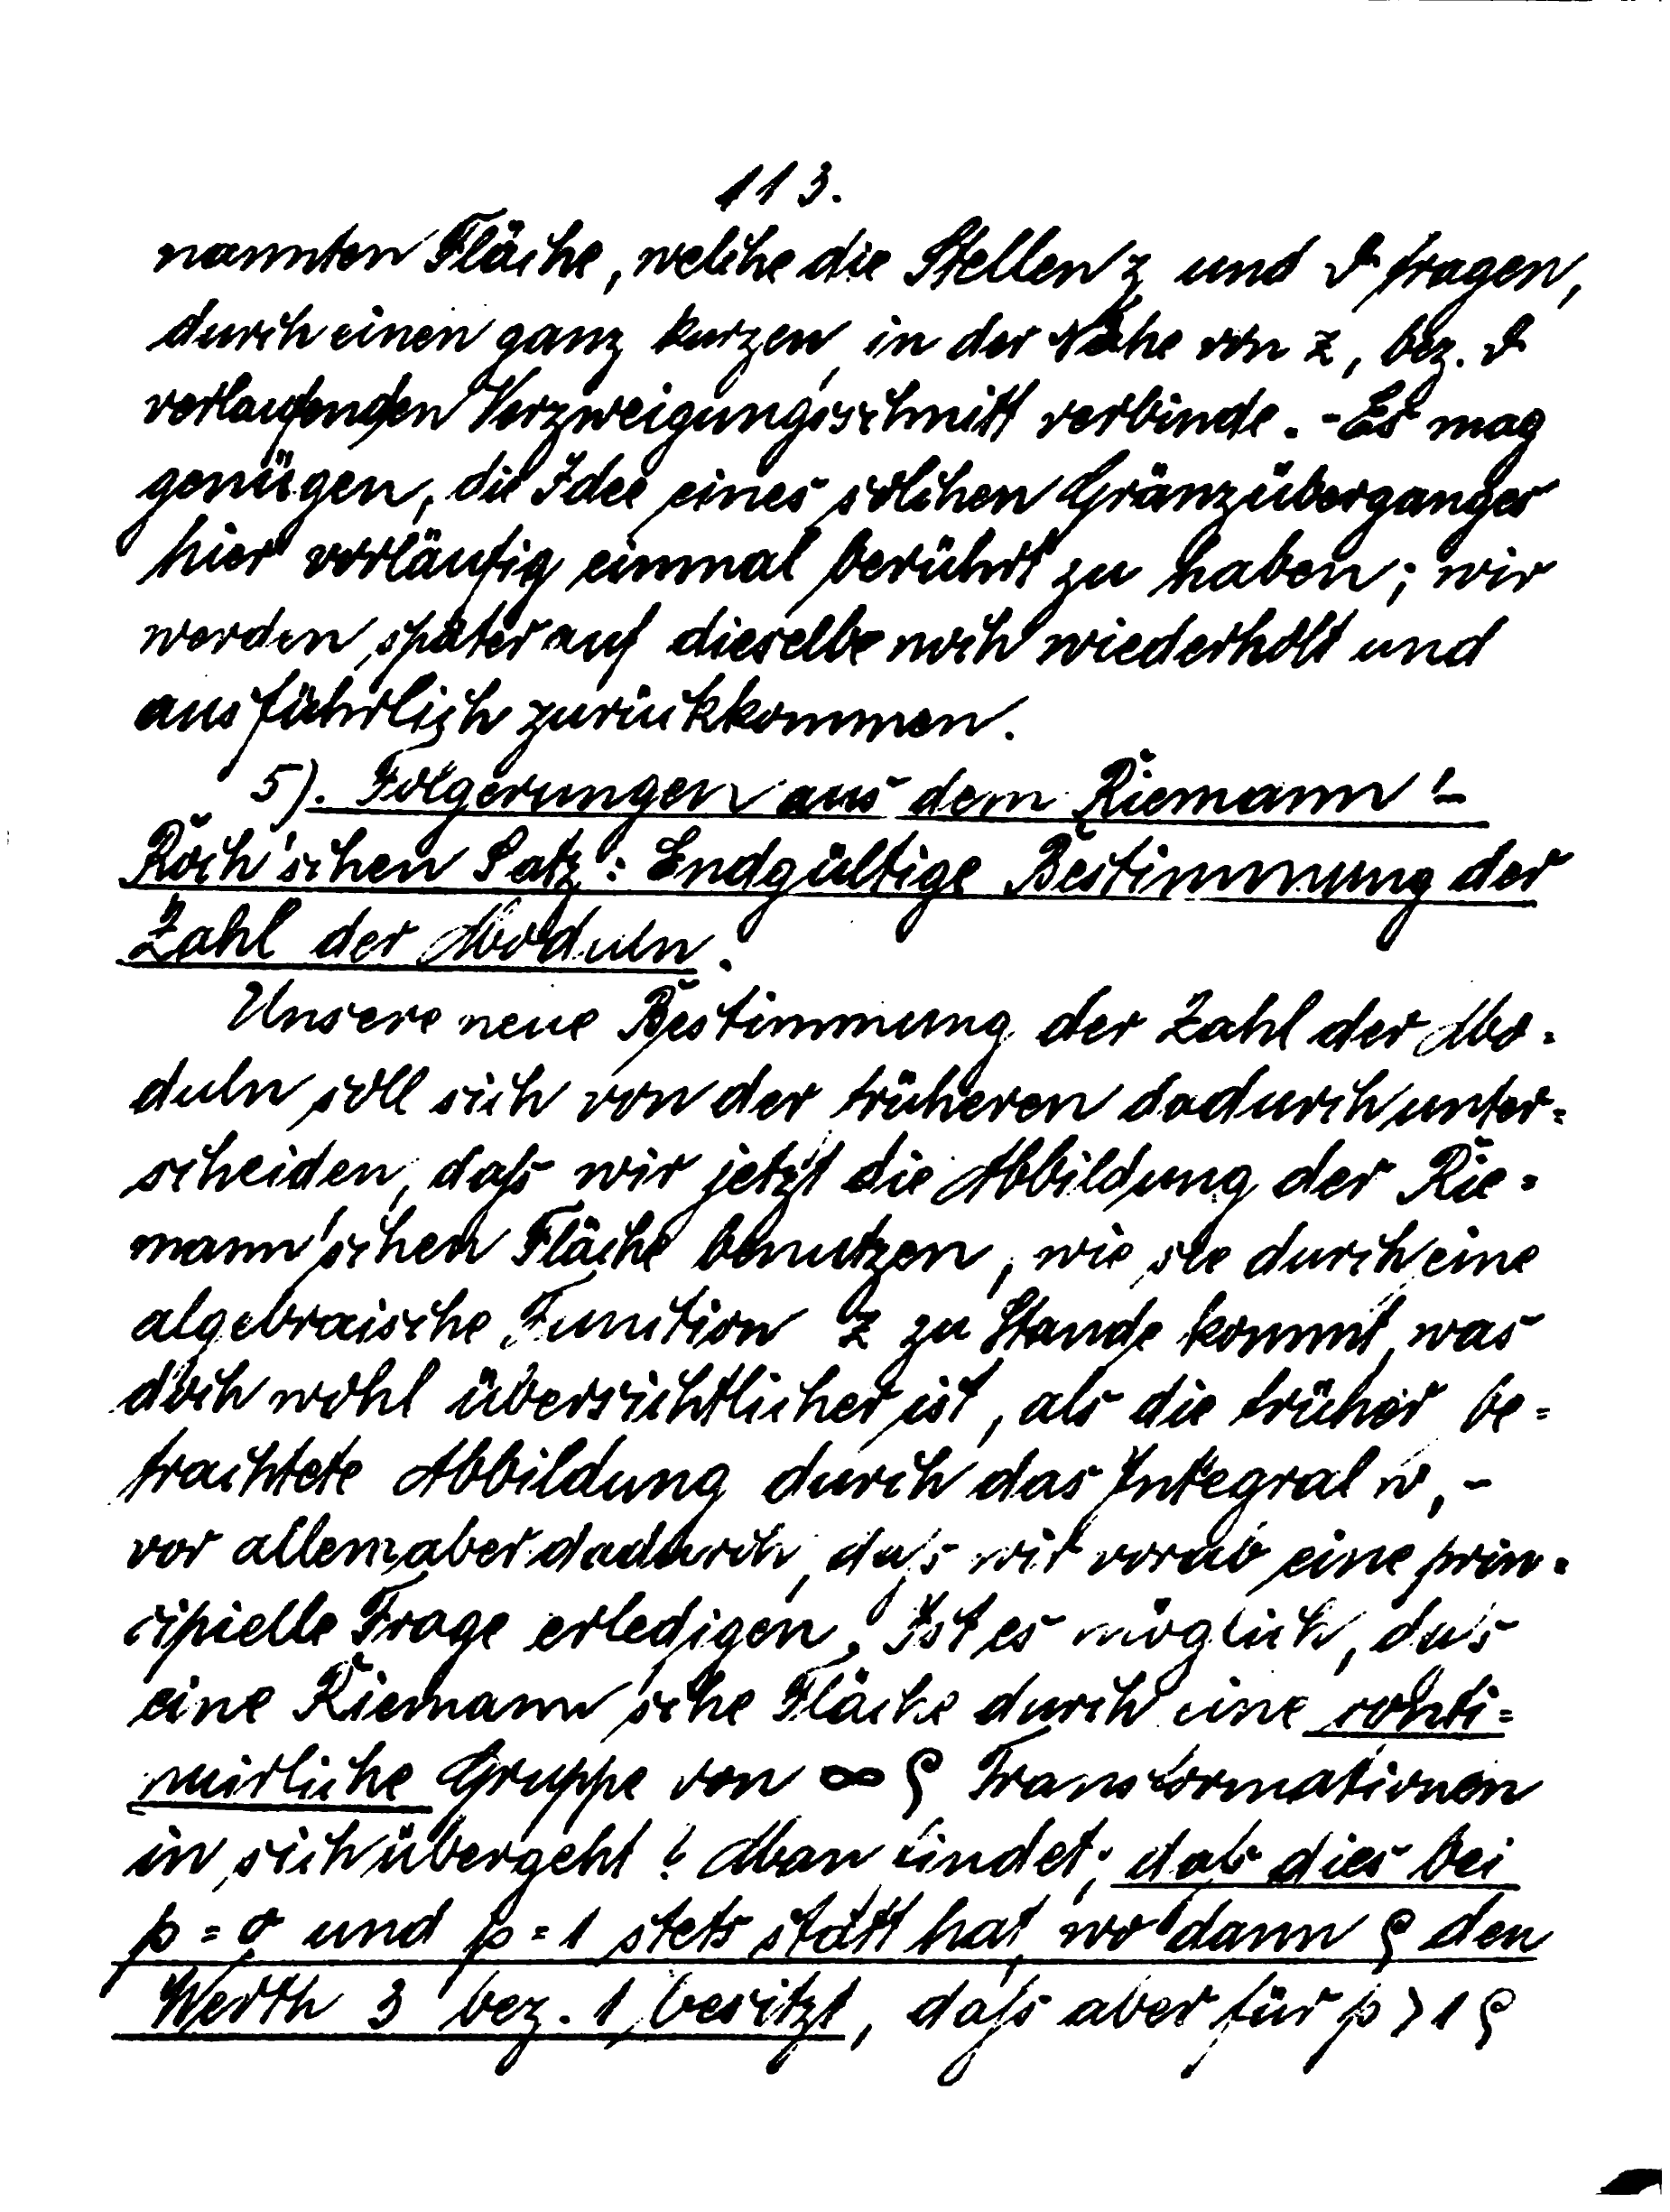 113.
nannten Fläche, welche die Stellen z und ϑ tragen,
durch einen ganz kurzen, in der Nähe von z, bez. ϑ
verlaufenden Verzweigungsschnitt verbinde. - Es mag
genügen, die Idee eines solchen Gränzüberganges
hier vorläufig einmal berührt zu haben; wir
werden später auf dieselbe noch wiederholt und
ausführlich zurückkommen.
5). Folgerungen aus dem Riemann'-
Roch'schen Satz: Endgültige Bestimmung der
Zahl der Moduln.
Unsere neue Bestimmung der Zahl der Mo=
duln soll sich von der früheren dadurch unter=
scheiden, dass wir jetzt die Abbildung der Rie=
mann'schen Fläche benutzen, wie sie durch eine
algebraische Function z zu Stande kommt, was
doch wohl übersichtlicher ist, als die früher be=
trachtete Abbildung durch das Integral w, -
vor allem aber dadurch, dass wir vorab eine prin=
cipielle Frage erledigen. Ist es möglich, dass
eine Riemann'sche Fläche durch eine conti=
nuirliche Gruppe von ∞ ρ Transformationen
in sich übergeht? Man findet, dass dies bei
p = 0 und p = 1 stets statt hat, wo dann ρ den
Werth 3 bez. 1 besitzt, dass aber für p > 1 ρ